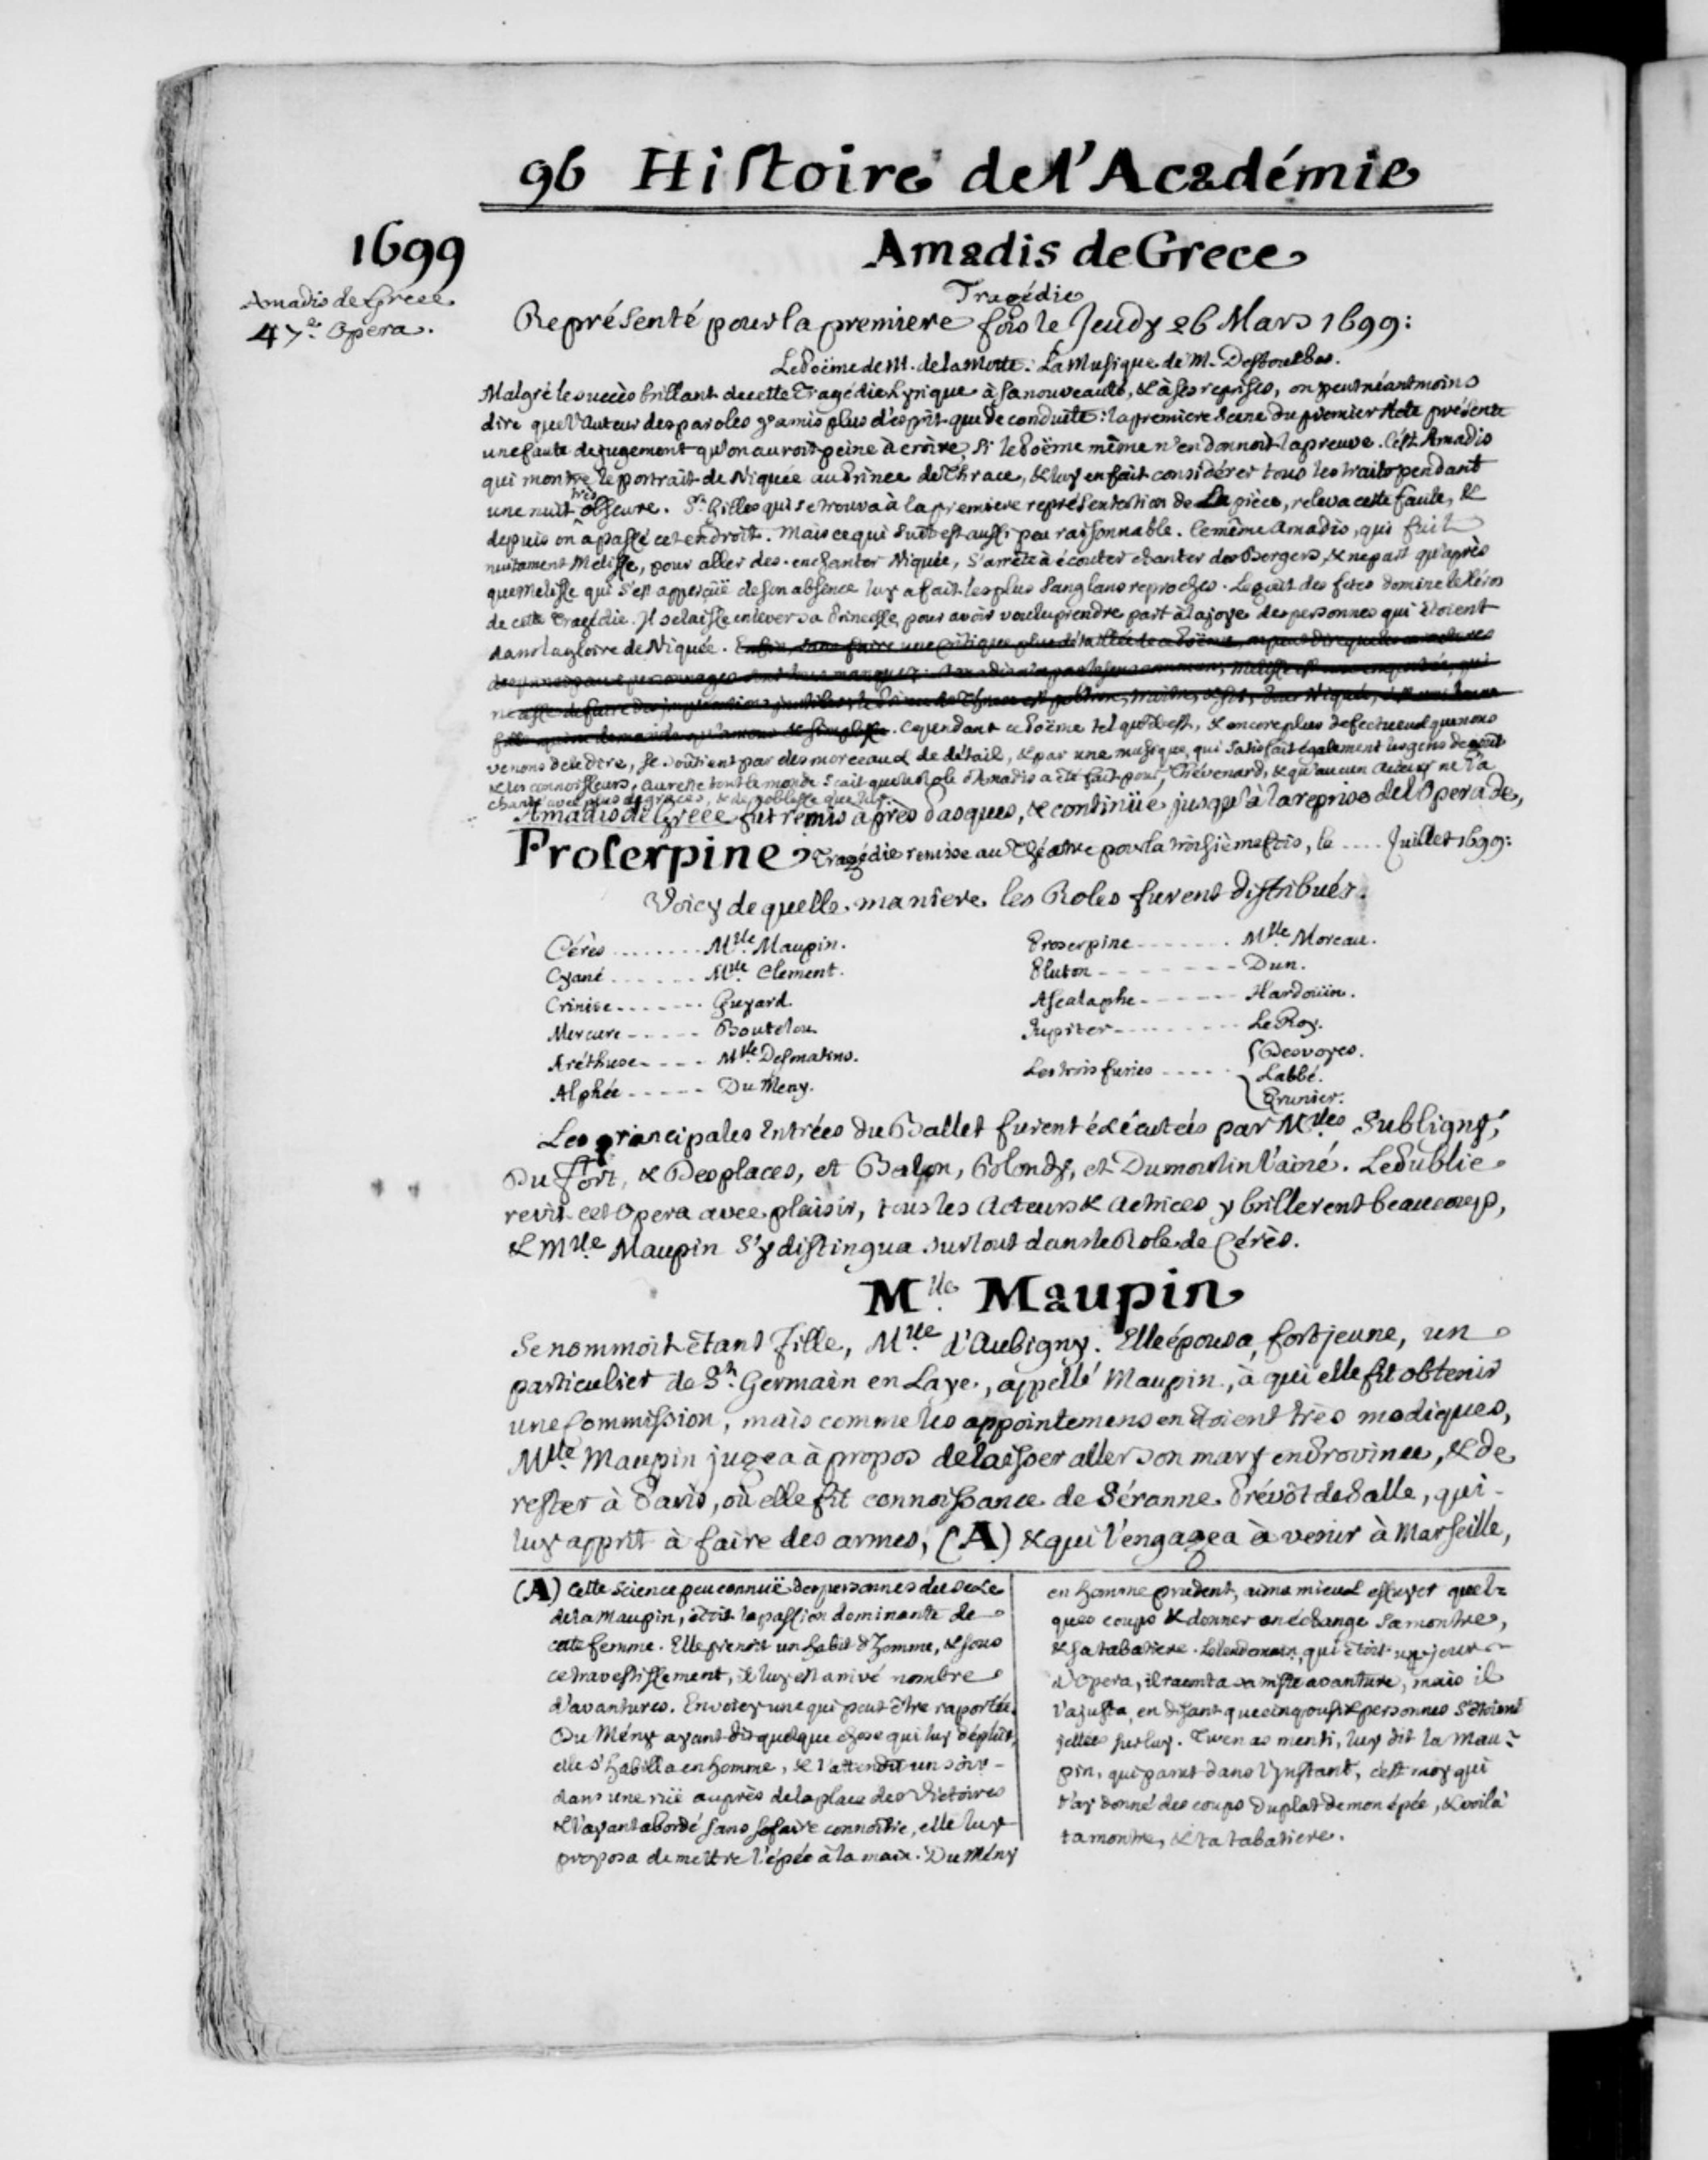 96 Histoire de l'Académie
1699
Amadis de Grece
47e. Opera.
Amadis de Grece
Tragédie
Représenté pour la premiere fois le Jeudy 26 Mars 1699:
Le Poëme de M. de la Motte: La Musique de M. Destouches.
Malgré le succès brillant de cette Tragédie Lyrique à sa nouveauté, & à ses reprises, on peut néantmoins
dire que l'Auteur des paroles y a mis plus d'esprit que de conduite: la premiere Scene du premier Acte présente
une faute de jugement qu'on auroit peine à croire, si le Poëme même n'en donnoit la preuve. C'est Amadis
qui montre le portrait de Niquée au Prince de Thrace, & luy en fait considérer tous les traits pendant
une nuit très obscure. St. Gilles qui se trouva à la premiere représentation de La pièce, releva cette faute, &
depuis on a passé cet endroit. Mais ce qui suit est aussi peu raisonnable. Ce même Amadis, qui fuit
nuitament Melisse, pour aller des-enchanter Niquée, s'arrête à écouter chanter des Bergers, & ne part qu'après
que Melisse qui s'est apperçüë de son absence luy a fait les plus sanglans reproches. Le goût des fêtes domine le Héros
de cette Tragédie. Il se laisse enlever sa Princesse, pour avoir voulu prendre part à la joye des personnes qui étoient
dans la gloire de Niquée. Enfin, sans faire une critique plus détaillée de ce Poëme, on peut dire que les caracteres
des principaux personnages sont tous manquez: Amadis n'a pas le sens commun, Melisse est une emportée, qui
ne cesse de faire des imprécations inutiles, le Prince de Thrace est poltron, traître, & sot, pour Niquée, c'est une bonne
fille qui ne demande qu'amour & simplesse. Cependant ce Poëme tel qu'il est, & encore plus defectueux que nous
venons de le dire, se soûtient par des morceaux de détail, & par une musique qui satisfait également les gens de goût
& les connoisseurs, au reste tout le monde sçait que le Role d'Amadis a été fait pour Thévenard, & qu'aucun Acteur ne l'a
chanté avec plus de graces, & de noblesse que luy.
Amadis de Grece fut remis après Pasques, & continüé jusqu'à la reprise de l'Opera de,
Proserpine, Tragédie remise au Théatre pour la troisième fois, le .... Juillet 1699:
Voicy de quelle maniere les Roles furent distribués.
Cérès ........ Mlle. Maupin.
Cyané ...... Mlle. Clement.
Crinise ....... Guyard.
Mercure ----- Boutelou
Aréthuse ---- Mlle Desmatins.
Alphée ----- Du Meny.
Proserpine ------- Mlle Moreau.
Pluton -------- Dun.
Ascalaphe ------ Hardoüin.
Jupiter --------- Le Roy.
Les trois furies ----- { Desvoyes.
Labbé.
Prunier.
Les principales Entrées du Ballet furent éxécutées par Mlles Subligny,
Du fort, & Desplaces, et Balon, Blondy, et Dumoulin l'ainé. Le Public
revit cet Opera avec plaisir, tous les Acteurs & Actrices y brillerent beaucoup,
& Mlle Maupin s'y distingua surtout dans le Role de Cérès.
Mlle. Maupin
Se nommoit étant Fille, Mlle. d'Aubigny. Elle épousa, fort jeune, un
particulier de St. Germain en Laye, appellé Maupin, à qui elle fit obtenir
une Commission, mais comme les appointemens en étoient très modiques,
Mlle. Maupin jugea à propos de laisser aller son mary en Province, & de
rester à Paris, où elle fit connoissance de Séranne Prévôt de Salle, qui
luy apprit à faire des armes, (A) & qui l'engagea à venir à Marseille,
(A) Cette science peu connuë des personnes du sexe
de la Maupin, étoit la passion dominante de
cette femme. Elle prenoit un habit d'homme, & sous
ce travestissement, il luy est arrivé nombre
d'avantures. En voicy une qui peut être raportée.
Du Mény ayant dit quelque chose qui luy déplût,
elle s'habilla en homme, & l'attendit un soir
dans une ruë auprès de la place des Victoires
& l'ayant abordé sans se faire connoître, elle luy
proposa de mettre l'épée à la main. Du Mény
en homme prudent, aima mieux essuyer quel-
ques coups & donner en échange sa montre,
& sa tabatiere. Le lendemain, qui étoit un jour
d'Opera, il raconta sa triste avanture, mais il
l'ajusta, en disant que cinq ou six personnes s'étoient
jettés sur luy. Tu en as menti, luy dit la Mau-
pin, qui parut dans l'Instant, c'est moy qui
t'ay donné des coups du plat de mon épée, & voilà
ta montre, & ta tabatiere.